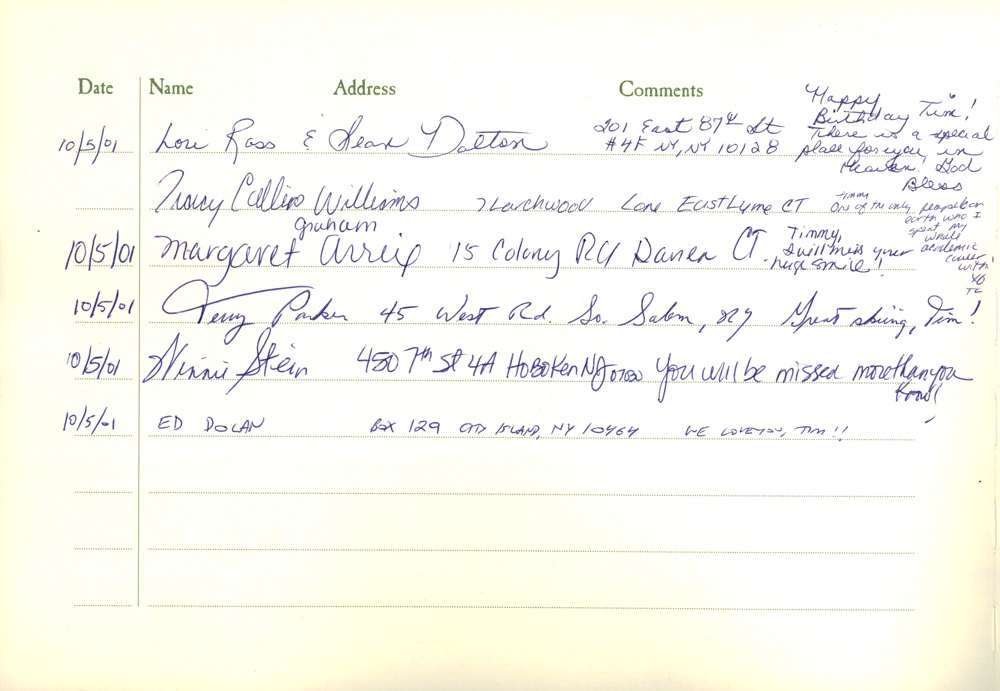 Date Name Address Comments
10/5/01 Lori Ross & Sean Dalton 201 East 87th St
#4F NY, NY 10128
Happy
Birthday Tim!
There is a special
place for you in
Heaven! God
Bless
Tracy Collins Williams 7 Larchwood Lane East Lyme CT
Timmy
One of the only people on
earth who I
spent my
whole
academic
career
with!
TC
graham
10/5/01 Margaret 15 Colony Rd Darien CT.
Timmy,
I will miss your
huge smile!
10/5/01 Terry Parker 45 West Rd. So. Salem, NY Great skiing, Tim!
10/5/01 Winnie Stein 450 7th St 4A Hoboken NJ You will be missed more than you
know!
10/5/01 ED DOLAN BOX 129 CITY ISLAND, NY 10464 WE LOVE YOU, TIM!!